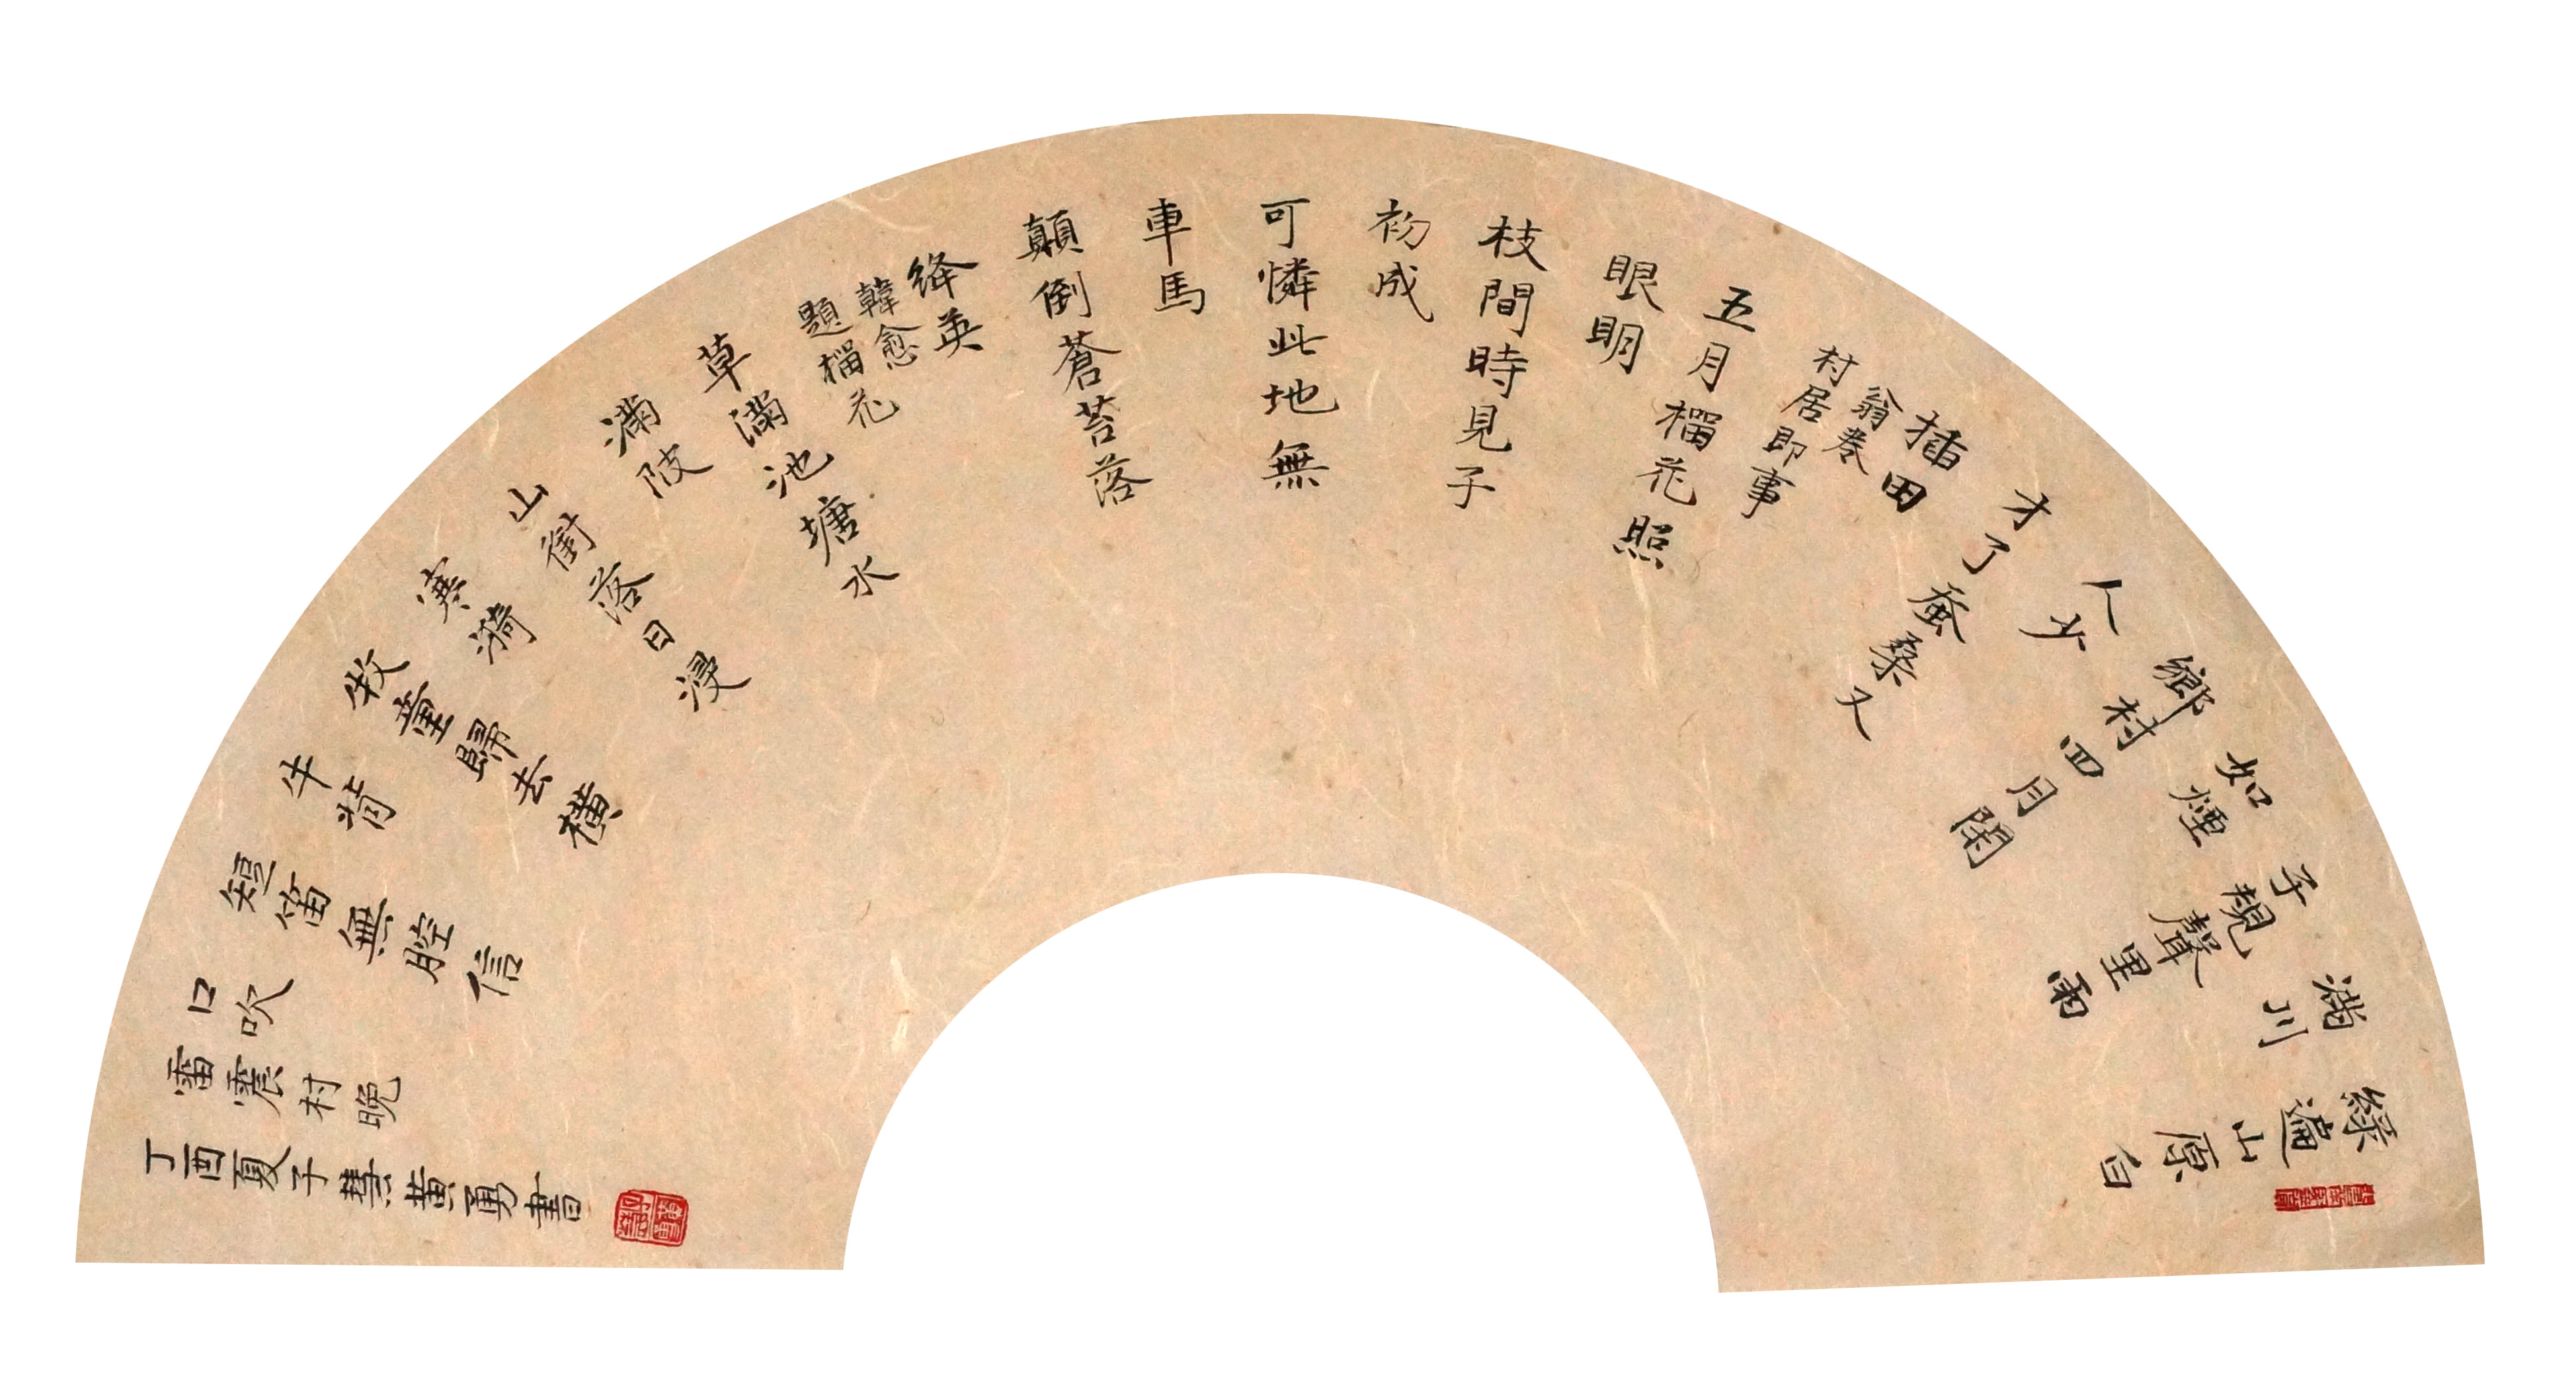 綠遍山原白
滿川
子規聲里雨
如煙
鄉村四月閑
人少
才了蚕桑又
插田
翁卷
村居即事
五月榴花照
眼明
枝間時見子
初成
可憐此地無
車馬
顛倒蒼苔落
絳英
韓愈
題榴花
草滿池塘水
滿陂
山銜落日浸
寒漪
牧童歸去橫
牛背
短笛無腔信
口吹
雷震村晚
丁酉夏子慧黄勇書